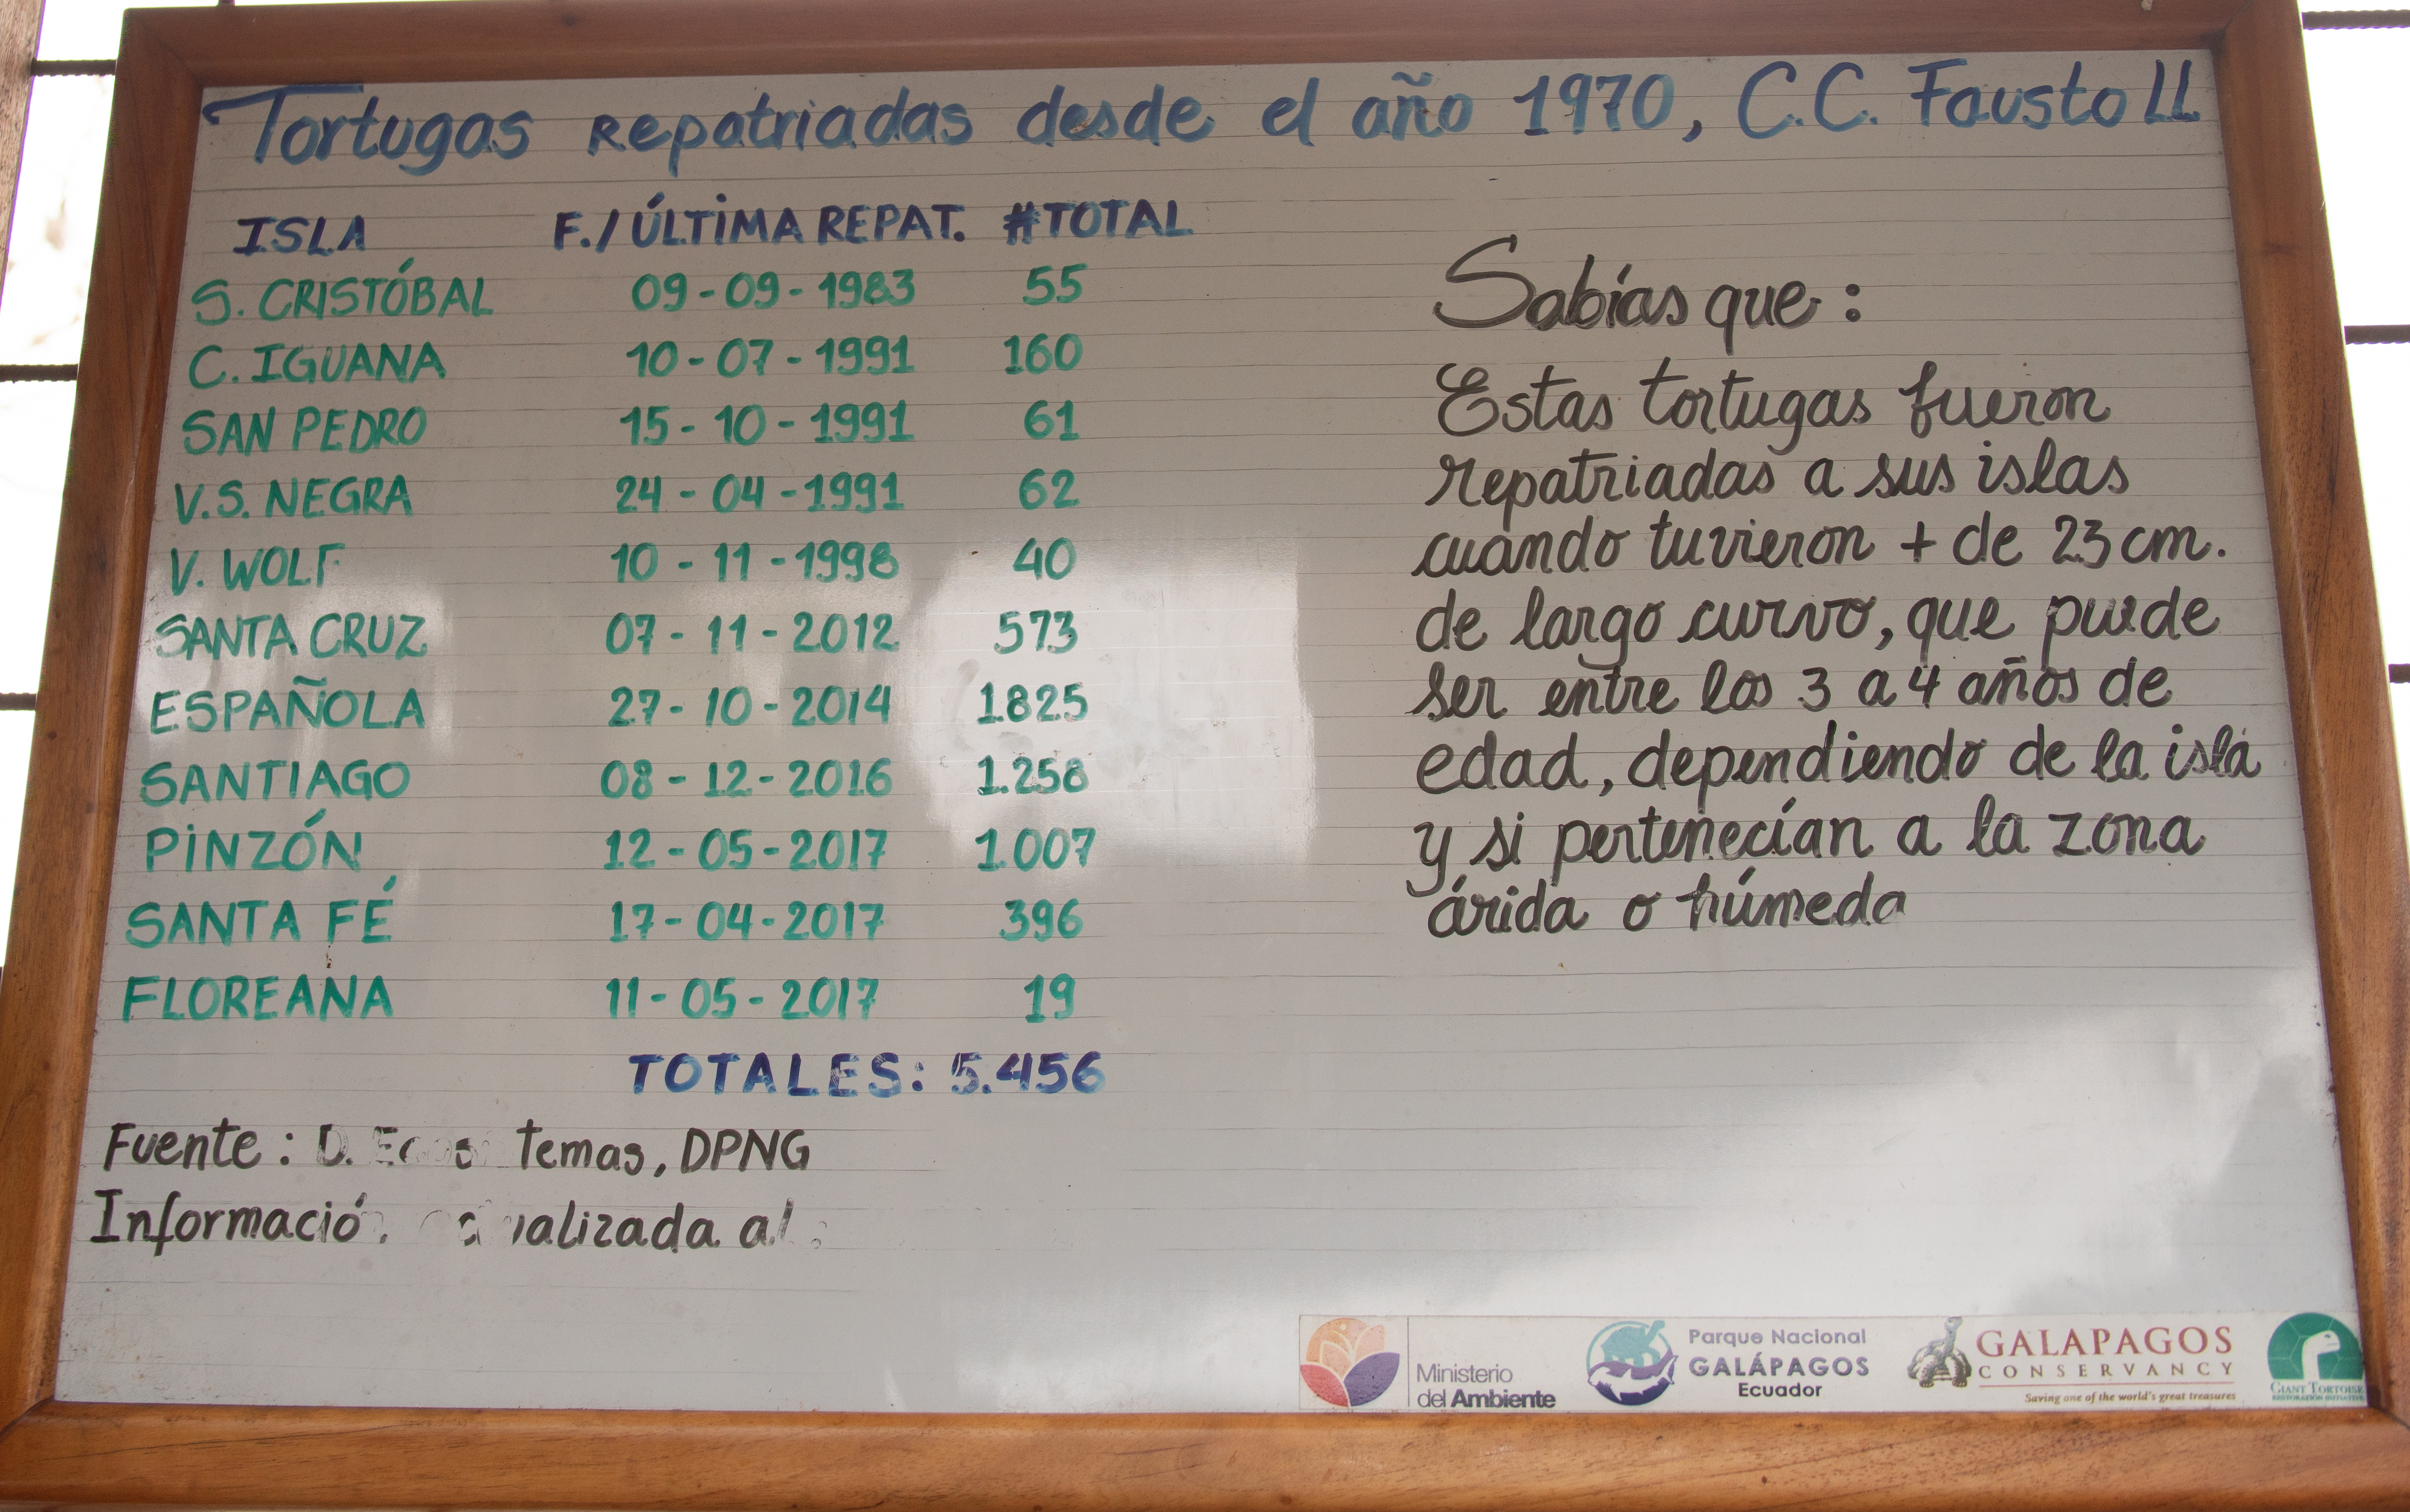 Tortugas Repatriadas desde el año 1970, C.C. Fausto LL
ISLA F./ÚLTIMA REPAT. #TOTAL
S. CRISTÓBAL 09-09-1983 55
C. IGUANA 10-07-1991 160
SAN PEDRO 15-10-1991 61
V.S. NEGRA 24-04-1991 62
V. WOLF 10-11-1998 40
SANTA CRUZ 07-11-2012 573
ESPAÑOLA 27-10-2014 1.825
SANTIAGO 08-12-2016 1.258
PINZÓN 12-05-2017 1.007
SANTA FÉ 17-04-2017 396
FLOREANA 11-05-2017 19
TOTALES: 5.456
Fuente: D. temas, DPNG
al:
Sabías que:
Estas tortugas fueron
repatriadas a sus islas
cuando tuvieron + de 23 cm.
de largo curvo, que puede
ser entre los 3 a 4 años de
edad, dependiendo de la isla
y si pertenecían a la zona
árida o húmeda
Ministerio
del Ambiente
Parque Nacional
GALÁPAGOS
Ecuador
GALAPAGOS
CONSERVANCY
Saving one of the world's great treasures
GIANT TORTOISE
RESTORATION INITIATIVE